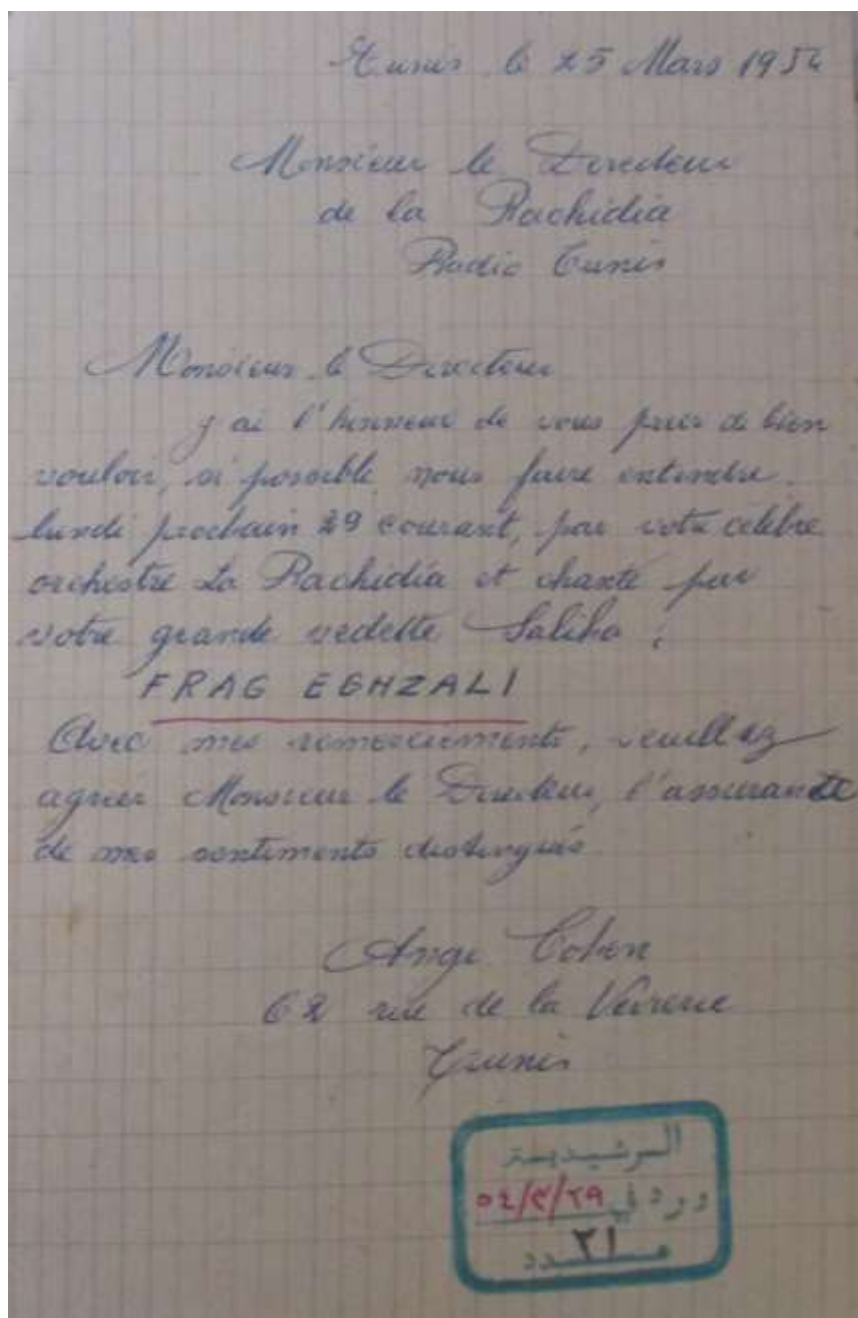 Tunis le 25 Mars 1954
Monsieur le Directeur
de la Rachidia
Radio Tunis
Monsieur le Directeur
j'ai l'honneur de vous prier de bien
vouloir, si possible nous faire entendre
lundi prochain 29 courant, par votre célèbre
orchestre La Rachidia et chanté par
votre grande vedette Saliha :
FRAG EGHZALI
Avec mes remerciements, veuillez
agréer Monsieur le Directeur, l'assurance
de mes sentiments distingués
Ange Cohen
62 rue de la Verrerie
Tunis
الرشيدية
ورد في ٥٤/٣/٢٩
عدد ٢١